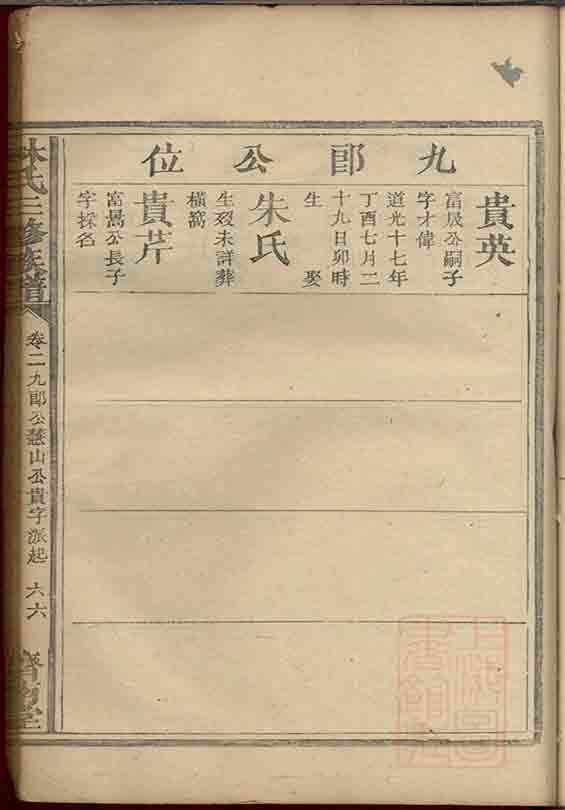 九郎公位
貴英
富晸公嗣子
字才偉
道光十七年
丁酉七月二
十九日卯時
生　娶
朱氏
生歿未詳葬
橫窩
貴芹
富暠公長子
字採名
林氏三修族譜
卷二九郎公慧山公貴字派起　六六
濟南堂